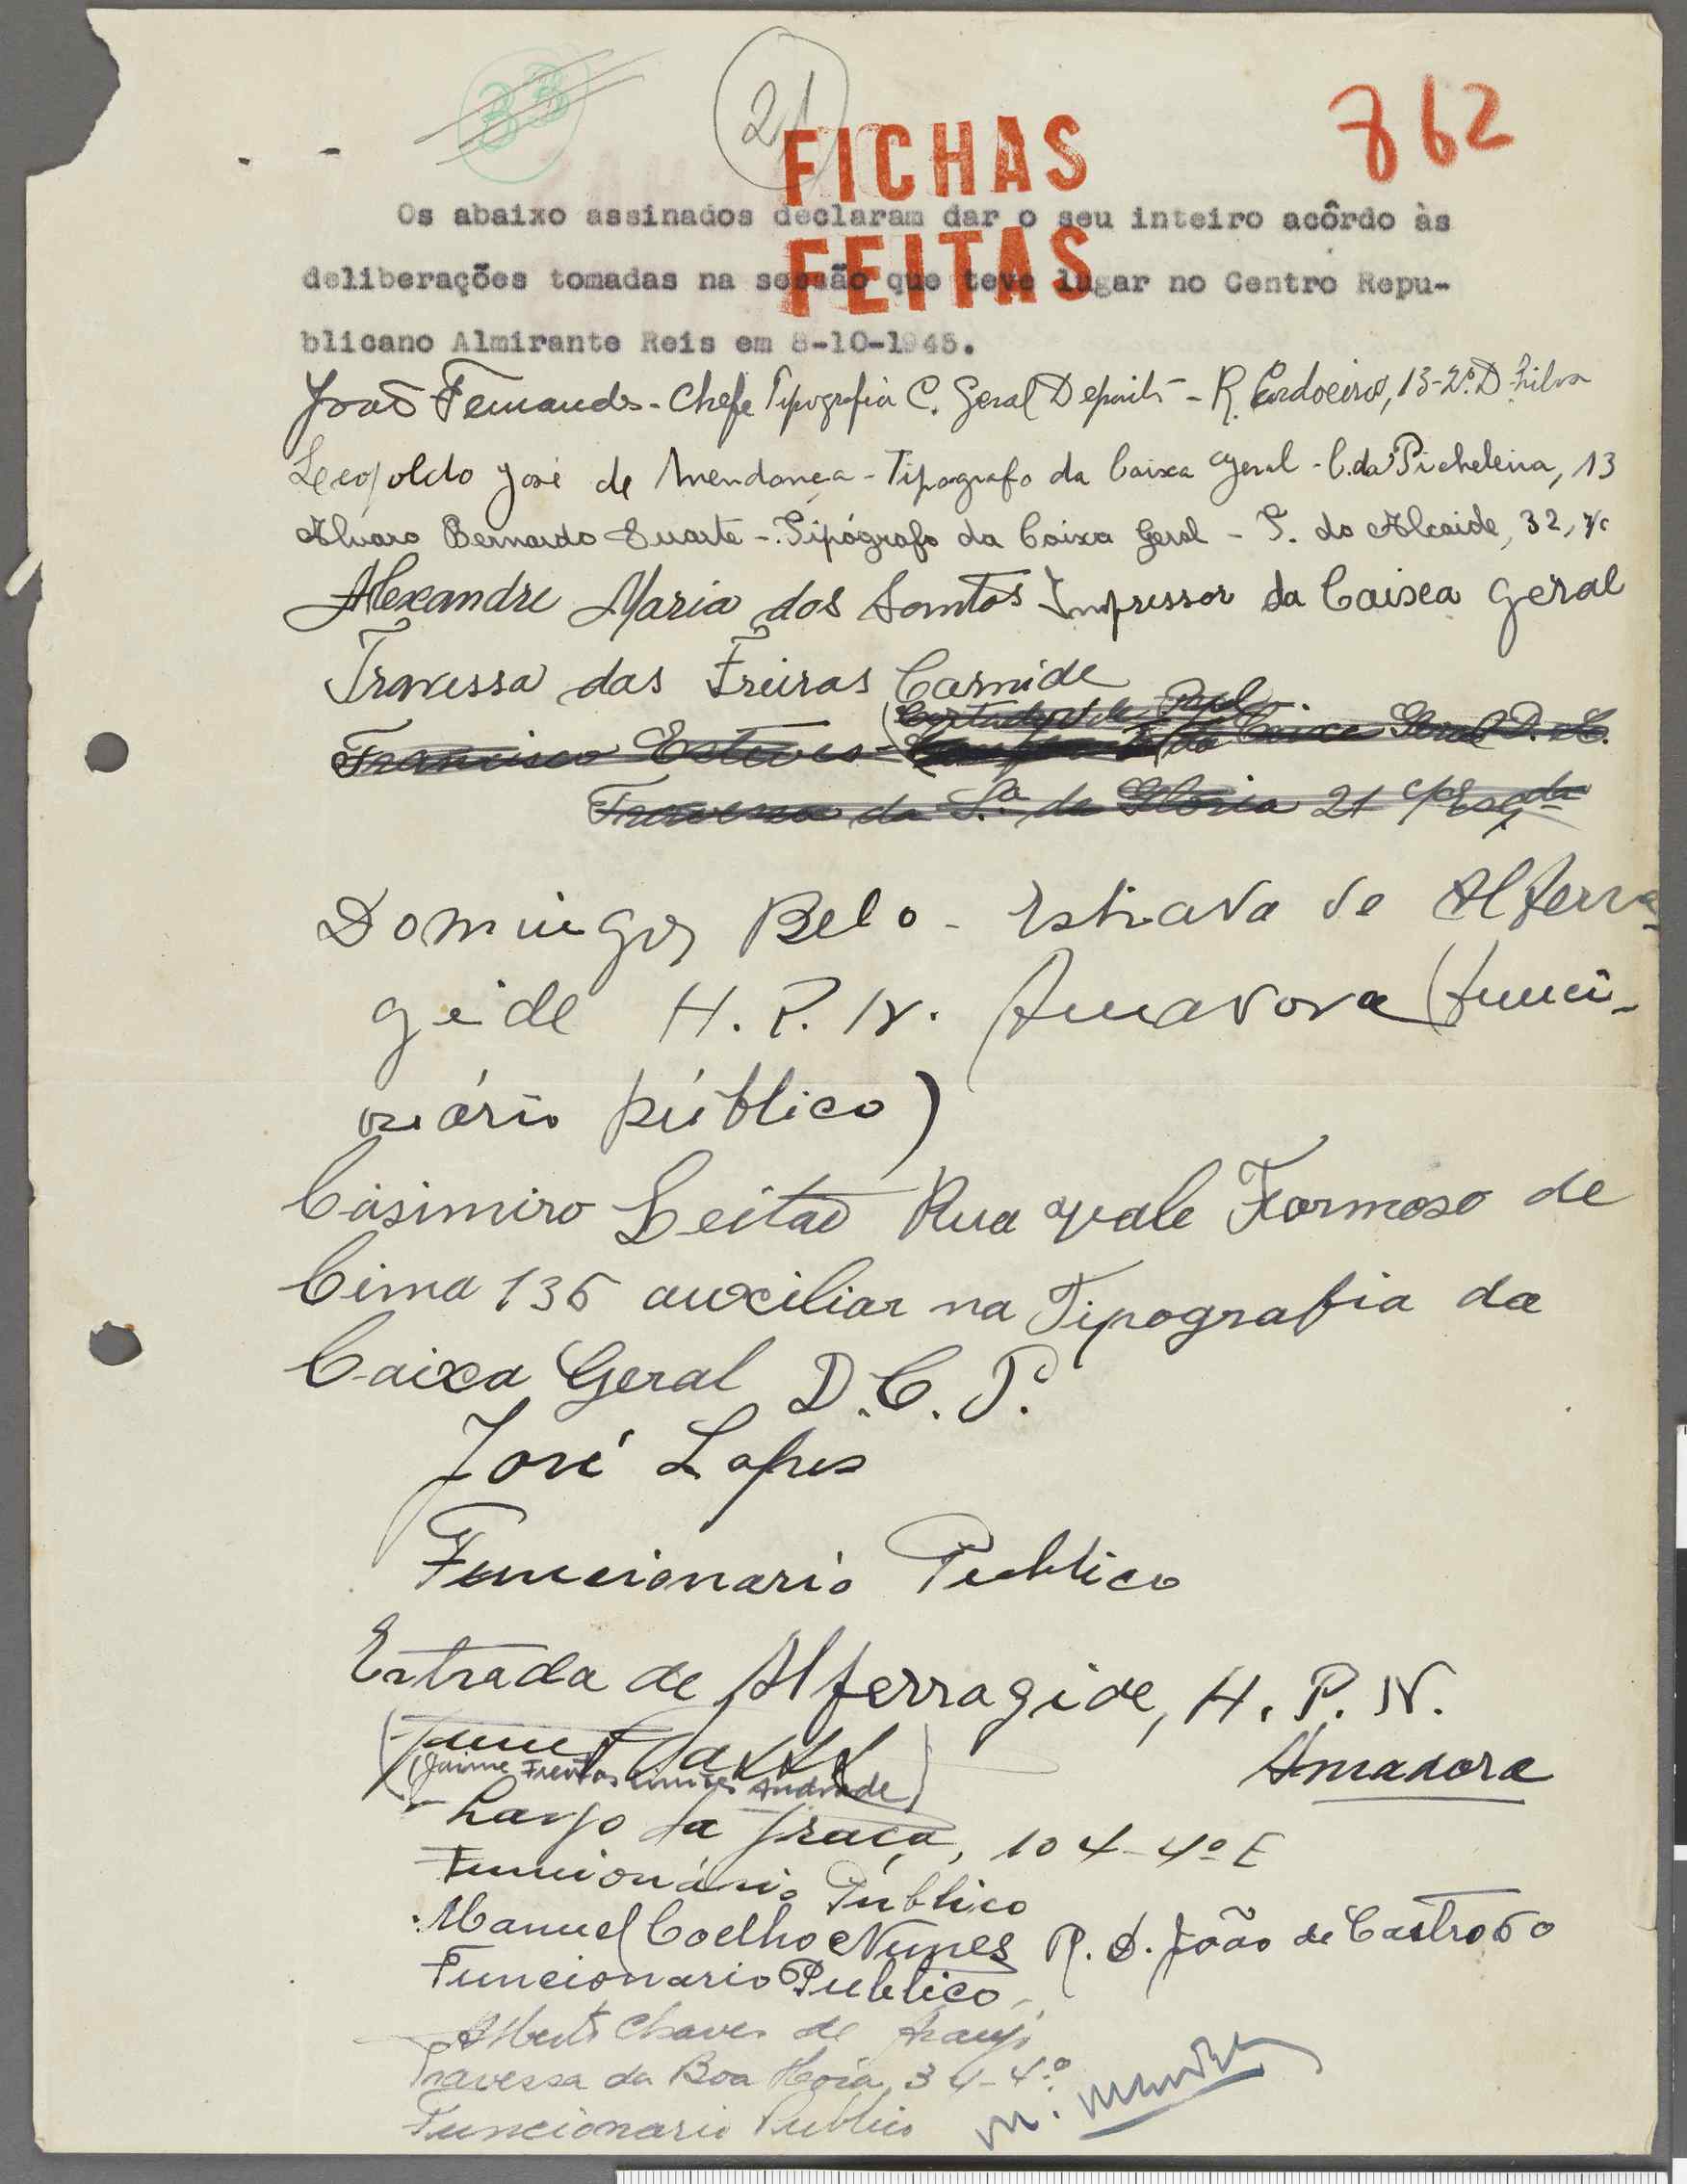 33
21
862
FICHAS
FEITAS
Os abaixo assinados declaram dar o seu inteiro acôrdo às
deliberações tomadas na sessão que teve lugar no Centro Repu-
blicano Almirante Reis em 8-10-1945.
João Fernandes - Chefe Tipografia C. Geral Deposits - R. Cordoeiros, 13-2º D
Leopoldo José de Mendonça - Tipografo da Caixa Geral - C. da Picheleira, 13
Alvaro Bernardo Duarte - Tipógrafo da Caixa Geral - T. do Alcaide, 32, r/c
Alexandre Maria dos Santos Impressor da Caixa Geral
Travessa das Freiras Carnide
(Cortador de Papel
Francisco Esteves - da Caixa Geral D. C.
Travessa da S.a da Glória 21 Esqda
Domingos Belo - Estrada de Alferra-
gide H. P. N. Amadora (funci-
onário público)
Casimiro Leitão Rua Vale Formoso de
Cima 136 auxiliar na Tipografia da
Caixa Geral D. C. P.
José Lopes
Funcionario Publico
Estrada de Alferragide, H. P. N.
Amadora
(Jaime Freitas Andrade)
Largo da Graça, 104-4º E
Funcionário Público
Manuel Coelho Nunes R. D. João de Castro 60
Funcionario Publico
Alberto Chaves de Araujo
Travessa da Boa Hora, 34-4.º
Funcionario Publico
M. Mendes